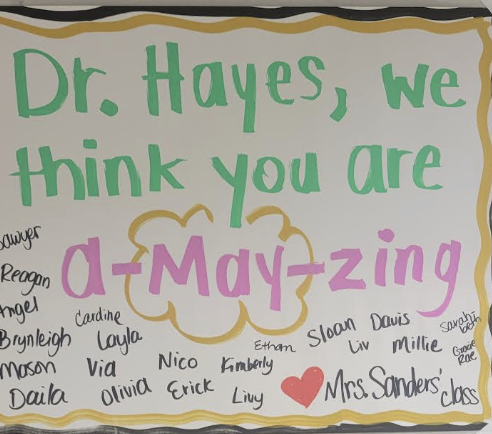 Dr. Hayes, we
think you are
a-May-zing
Sawyer
Reagan
Angel
Brynleigh
Mason
Daila
Caroline
Layla
Via
Olivia
Nico
Erick
Ethan
Kimberly
Livy
Sloan
Davis
Liv
Millie
Sarah
beth
Gracie
Rae
Mrs. Sanders'
class